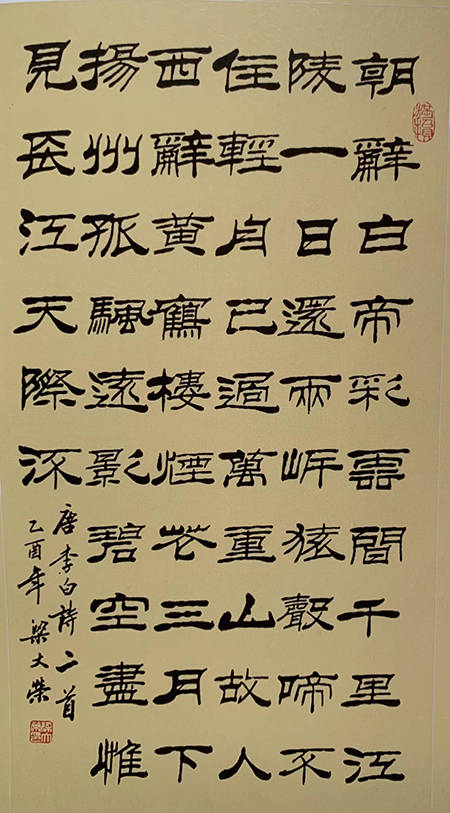 朝辭白帝彩雲間千里江
陵一日還兩岸猿聲啼不
住輕舟已過萬重山故人
西辭黃鶴樓煙花三月下
揚州孤颿遠影碧空盡惟
見長江天際流
唐李白詩二首
乙酉年 梁大榮